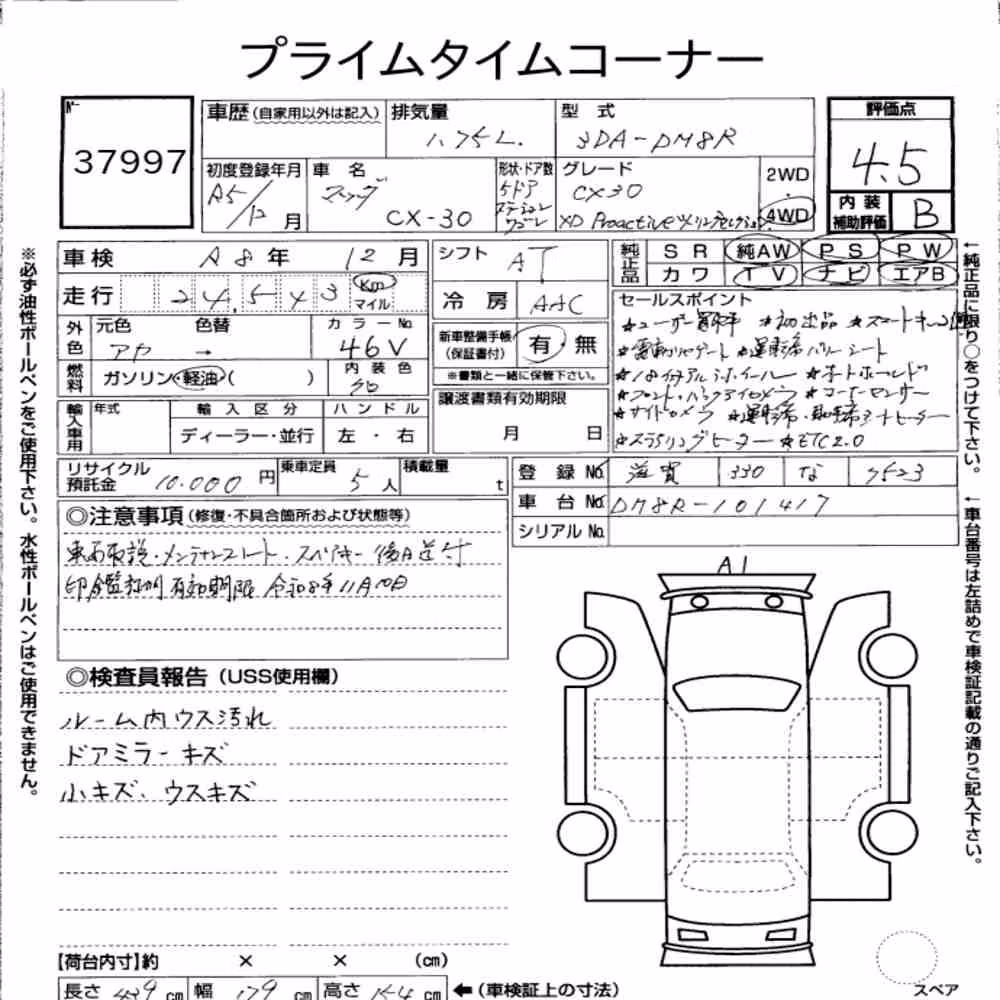 プライムタイムコーナー
No. 37997
車歴 (自家用以外は記入)
排気量 1.75L.
型式 3DA-DM8R
評価点 4.5
内装補助評価 B
初度登録年月 R5/12月
車名 マツダ CX-30
形状・ドア数 5ドア ステーションワゴン
グレード CX30
XD Proactive ツーリングセレクション
2WD ・ 4WD
車検 R8年 12月
シフト AT
純正品 SR 純AW PS PW
カワ TV ナビ エアB
走行 24,543 Km マイル
冷房 AAC
セールスポイント
★ユーザー買取車 ★初出品 ★スマートキー2個
★電動リヤゲート ★運転席パワーシート
★18インチアルミホイール ★オートホールド
★フロント・バックサイドカメラ ★コーナーセンサー
★サイドカメラ ★運転席・助手席シートヒーター
★ステアリングヒーター ★ETC2.0
外色 元色 色替 カラーNo.
アヤ → 46V
新車整備手帳(保証書付) 有・無
※書類と一緒に保管下さい。
燃料 ガソリン・軽油・( )
内装色 クロ
譲渡書類有効期限
月 日
輸入車用 年式 輸入区分 ハンドル
ディーラー・並行 左・右
リサイクル預託金 10,000円
乗車定員 5人
積載量 t
登録No. 滋賀 330 な 7523
車台No. DM8R-101417
シリアルNo.
◎注意事項 (修復・不具合箇所および状態等)
車両取説・メンテナンスノート・スペアキー後日送付
印鑑証明有効期限 令和8年11月10日
◎検査員報告 (USS使用欄)
ルーム内ウス汚れ
ドアミラーキズ
小キズ、ウスキズ
A1
【荷台内寸】約 × × (cm)
長さ 439cm 幅 179cm 高さ 154cm ←(車検証上の寸法)
スペア
※必ず油性ボールペンをご使用下さい。水性ボールペンはご使用できません。
←純正品に限り○をつけて下さい。
←車台番号は左詰めで車検証記載の通りご記入下さい。